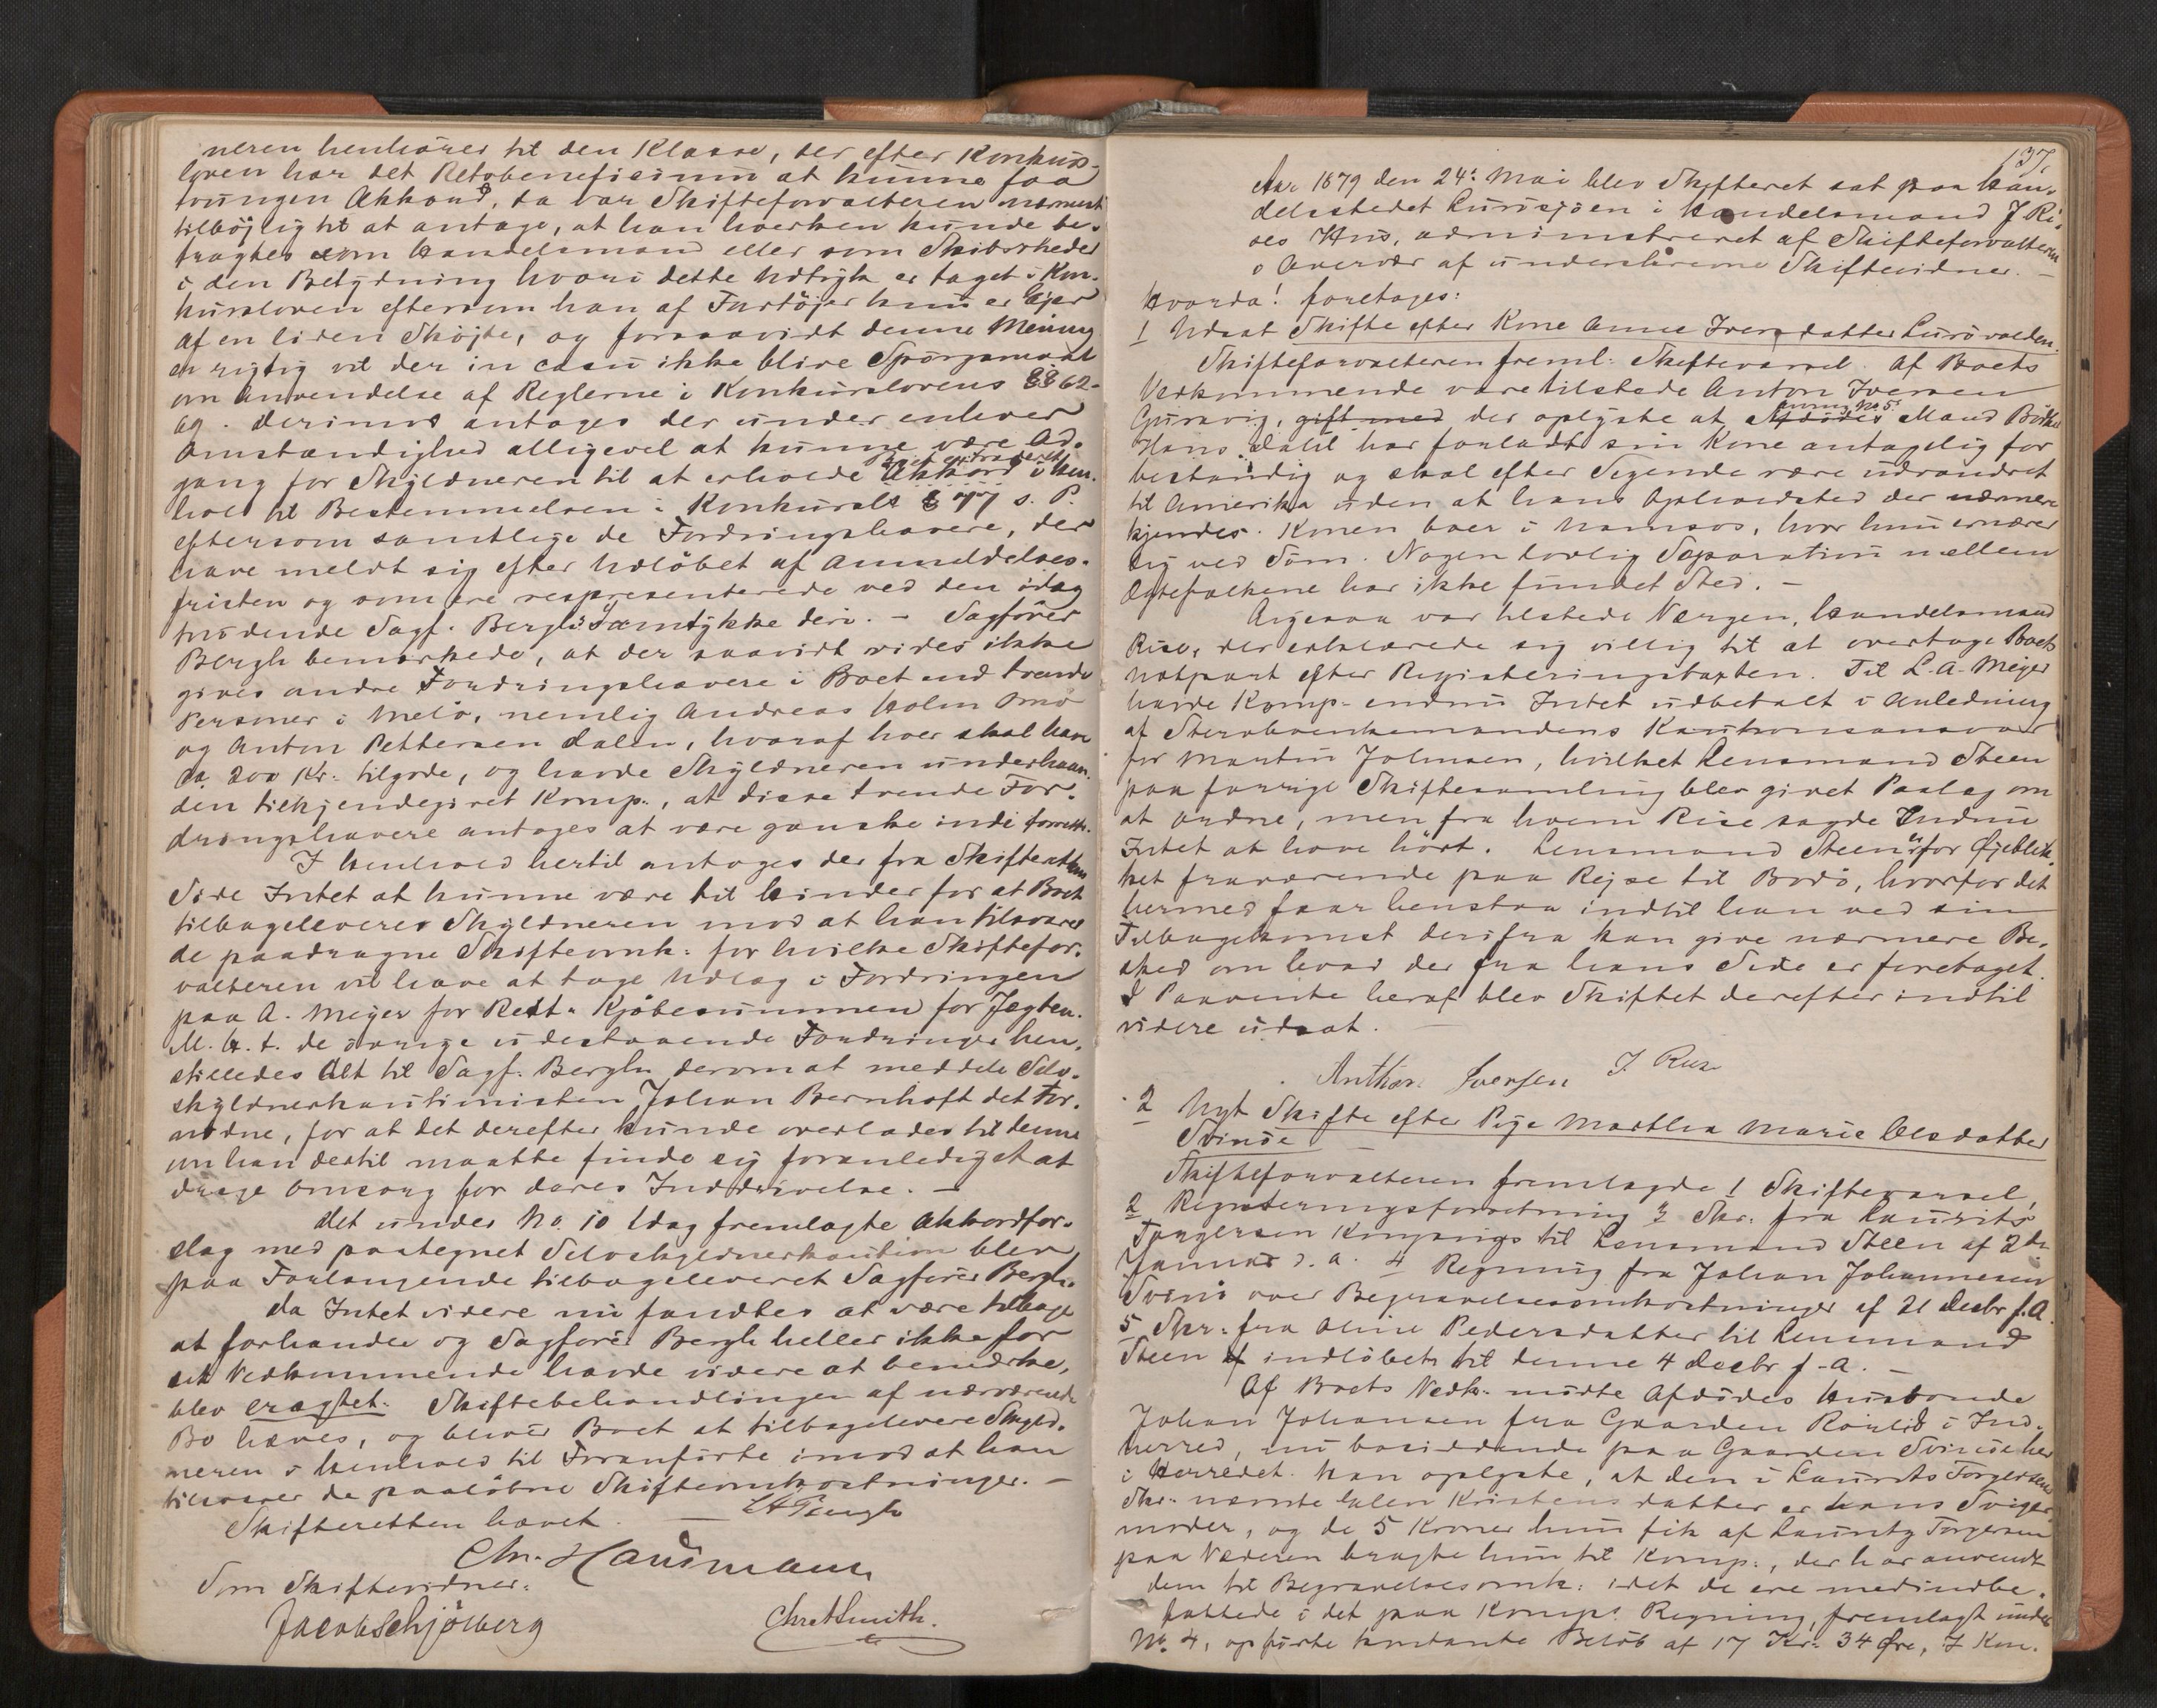 neren henhører til den Klasse, der efter Konkurs-
loven har det Retsbeneficium at kunne faa
tvungen Akkord, da var Skifteforvalteren nærmest
tilbøjelig til at antage, at han hverken kunde be-
tragtes som Handelsmand eller som Skibsrheder
i den Betydning hvori dette Udtryk er taget i Kon-
kursloven eftersom han af Fartøjer kun er Ejer
af en liden Skøjte, og forsaavidt denne Mening
er rigtig vil der in casu ikke blive Spørgsmaal
om Anvendelse af Reglerne i Konkurslovens §§ 62-
69. Derimod antages der under enhver
Omstændighed alligevel at kunne være Ad-
gang for Skyldneren til at erholde Akkord i Hen-
hold til Bestemmelsen i Konkursls § 77 s. P.
eftersom samtlige de Fordringshavere, der
have meldt sig efter Udløbet af Anmeldelses-
fristen og som ere respresenterede ved den idag
mødende Sagf. Bergh samtykke deri. – Sagfører
Bergh bemærkede, at der saavidt vides ikke
gives andre Fordringshavere i Boet end trende
Personer i Melø, nemlig Andreas Holm Omø
og Anton Pettersen Dalen, hvoraf hver skal have
ca. 200 Kr. tilgode, og havde Skyldneren underhaan-
den tilkjendegivet Komp., at disse trende For-
dringshavere antages at være ganske indeforrettt.
I Henhold hertil antages der fra Skifterettens
Side Intet at kunne være til Hinder for at Boet
tilbageleveres Skyldneren mod at han tilsvarer
de paadragne Skifteomk. for hvilke Skiftefor-
valteren vil have at tage Udlæg i Fordringen
paa A. Meyer for Rest. Kjøbesummen for Jagten.
M. H. t. de øvrige udestaaende Fordringer hen-
stilledes Alt til Sagf. Bergh derom at meddele Selv-
skyldnerkautionisten Johan Bernhoft det For-
nødne, for at det derefter kunde overlades til denne
om han dertil maatte finde sig foranlediget at
drage Omsorg for deres Inddrivelse. –
Det under No. 10 Idag fremlagte Akkordfor-
slag med paategnet Selvskyldnerkaution blev
paa Forlangende tilbageleveret Sagfører Bergh.
Da Intet videre nu fandtes at være tilbage
at forhandle og Sagfører Bergh heller ikke for
sit Vedkommende havde videre at bemærke,
blev eragtet: Skiftebehandlingen af nærværende
Bo hæves, og bliver Boet at tilbagelevere Skyld-
neren i Henhold til Foranførte imod at han
tilsvarer de paaløbne Skifteomkostninger. –
Skifteretten hævet. –
Chr. Hansmann
Som Skiftevidner:
Jacob Schjølberg Chr. A Smith.
137.
Aar 1879 den 24de Mai blev Skifteret sat paa Han-
delsstedet Lurøsjøen i Handelsmand J. Ri-
ses Hus, administreret af Skifteforvalteren
i Overvær af underskrevne Skiftevidner. –
Hvorda! foretages:
1 Udsat Skifte efter Kone Anne Iversdatter Lurøvolden.
Skifteforvalteren freml. Skiftevarsel. Af Boets
Vedkommende vare tilstede Anton Iversen
der oplyste at Mand Bødker
Hans Dahl har forladt sin Kone antagelig for
bestandig og skal efter Sigende være udvandret
til Amerika uden at hans Opholdsted der nærmere
kjendes. Konen boer i Namsos, hvor hun ernærer
sig ved Søm. Nogen lovlig Separation mellem
Ægtefolkene har ikke fundet Sted. –
Ligesaa var tilstede Værgen, Handelsmand
Rise, der erklærede sig villig til at overtage Boets
Notpart efter Registeringstaxten. Til L. A. Meyer
havde Komp. endnu Intet udbetalt i Anledning
af Stervboenkemandens Kautionsansvar
for Martin Johnsen, hvilket Lensmand Steen
paa forrige Skiftesamling blev givet Paalæg om
at ordne, men fra hvem Rise sagde Endnu
Intet at have hørt. Lensmand Steen er for Øjeblik-
ket fraværende paa Rejse til Bodø, hvorfor det
hermed faar henstaa indtil han ved sin
Tilbagekomst derifra kan give nærmere Be-
sked om hvad der fra hans Side er foretaget.
I Paavente heraf blev Skiftet derefter indtil
videre udsat. –
Anthon Iversen J. Rise
2 Nyt Skifte efter Pige Marthea Marie Olsdatter
Svinøe
Skifteforvalteren fremlagde 1 Skiftevarsel,
2 Registeringsforretning 3 Skr. fra Laurits
Torgersen til Lensmand Steen af 2de
Januar d. a. 4 Regning fra Johan Johannesen
Svinø over Begravelsesomkostninger af 21 Decbr f. A.
5 Skr. fra Oline Pedersdatter til Lensmand
Steen indløbet til denne 4 Decbr f. A. –
Af Boets Vedk. mødte Afdødes Husbonde
Johan Johansen fra Gaarden i Ind-
herred, nu bosiddende paa Gaarden Svinøe her
i Herredet. Han oplyste, at den i Laurits Torgersens
Skr. nævnte Kristensdatter er hans Sviger-
moder, og de 5 Kroner hun fik af Laurits Torgersen
paa Væderen bragte hun til Komp., der har anvendt
dem til Begravelsesomk. idet de ere medindbe-
fattede i det paa Komps Regning, fremlagt under
No. 4, opførte kontante Beløb af 17 Kr. 34 Øre, I Kon-